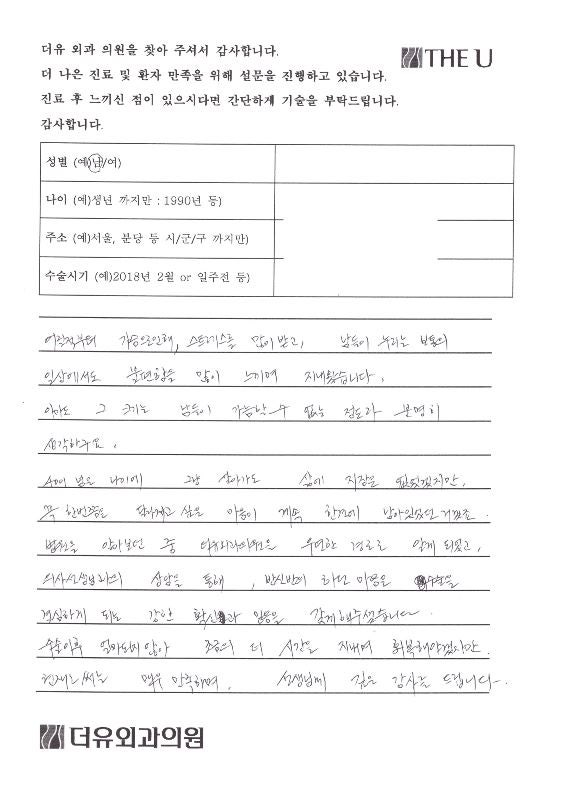 더유 외과 의원을 찾아 주셔서 감사합니다.
THE U
더 나은 진료 및 환자 만족을 위해 설문을 진행하고 있습니다.
진료 후 느끼신 점이 있으시다면 간단하게 기술을 부탁드립니다.
감사합니다.
성별 (예)남/여)
나이 (예)생년 까지만 : 1990년 등)
주소 (예)서울, 분당 등 시/군/구 까지만)
수술시기 (예)2018년 2월 or 일주전 등)
어릴적부터 가슴으로인해, 스트레스를 많이받고, 남들이 누리는 보통의
일상에서도 불편함을 많이 느끼며 지내왔습니다.
아마도 그 크기는 남들이 가늠할수 없는 정도라 분명히
생각하구요.
40이 넘은 나이에 그냥 살아가도 삶에 지장은 없었겠지만,
꼭 한번쯤은 하고 싶은 마음이 계속 한켠에 남아있었던 거겠죠.
병원을 알아보던 중 더유외과의원을 우연한 경로로 알게 되었고,
의사선생님과의 상담을 통해, 반신반의 하던 마음은 수술을
결심하게 되는 강한 확신과 믿음을 갖게해주셨습니다.
수술이후 얼마되지않아 조금의 더 시간을 지내며 회복해야겠지만
현재로써는 매우 만족하며, 선생님께 깊은 감사를 드립니다.
더유외과의원